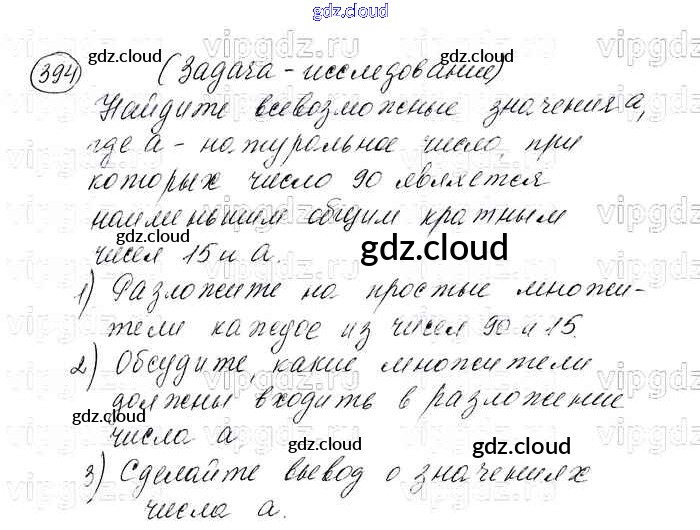 gdz.cloud
394 (Задача - исследование)
Найдите всевозможные значения а,
где а - натуральное число, при
которых число 90 является
наименьшим общим кратным
чисел 15 и а.
1) Разложите на простые множи-
тели каждое из чисел 90 и 15.
2) Обсудите, какие множители
должны входить в разложение
числа а.
3) Сделайте вывод о значениях
числа а.
gdz.cloud
gdz.cloud
gdz.cloud
gdz.cloud
gdz.cloud
gdz.cloud
gdz.cloud